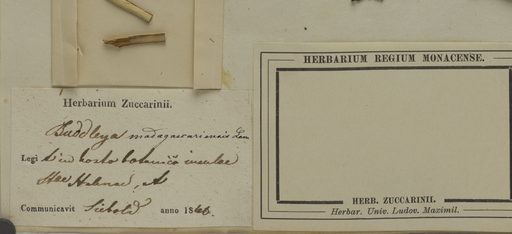 Herbarium Zuccarinii.
Buddleya madagascariensis Lam
Legi in horto botanico insulae
Stae Helenae,
Communicavit Siebold anno 18
HERBARIUM REGIUM MONACENSE.
HERB. ZUCCARINII.
Herbar. Univ. Ludov. Maximil.